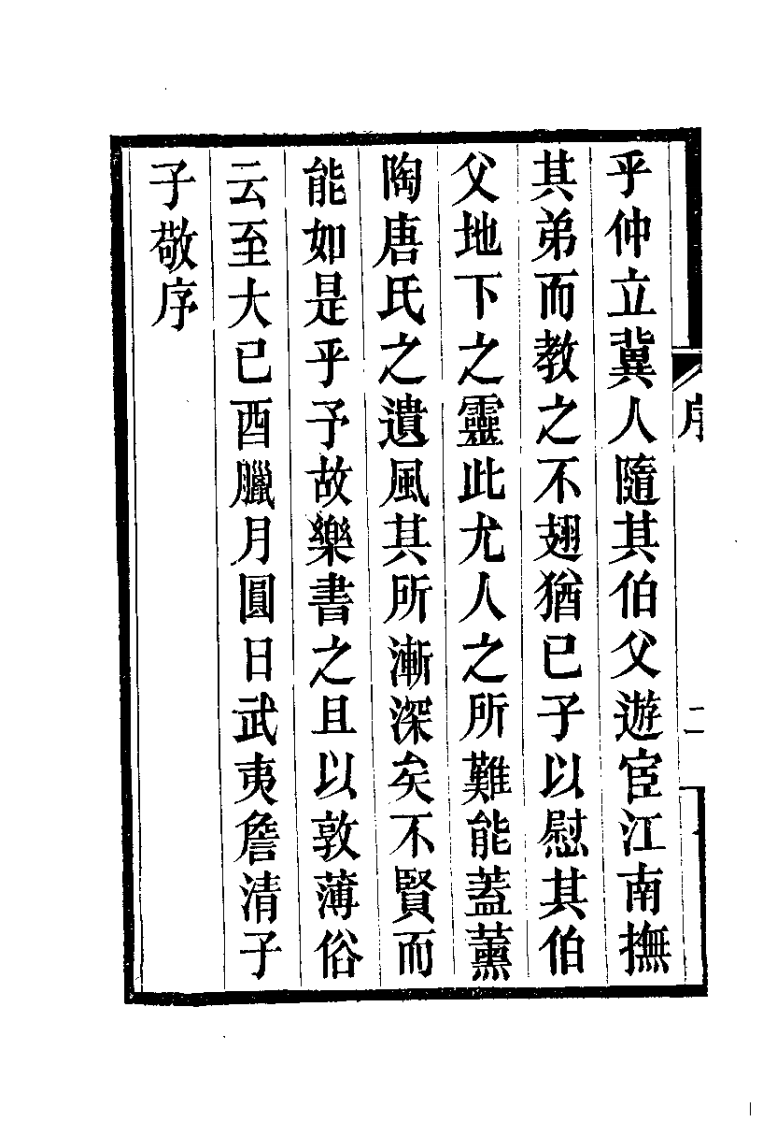 序
二
乎仲立冀人隨其伯父遊宦江南撫
其弟而教之不翅猶已子以慰其伯
父地下之靈此尤人之所難能蓋薰
陶唐氏之遺風其所漸深矣不賢而
能如是乎予故樂書之且以敦薄俗
云至大已酉臘月圓日武夷詹清子
子敬序